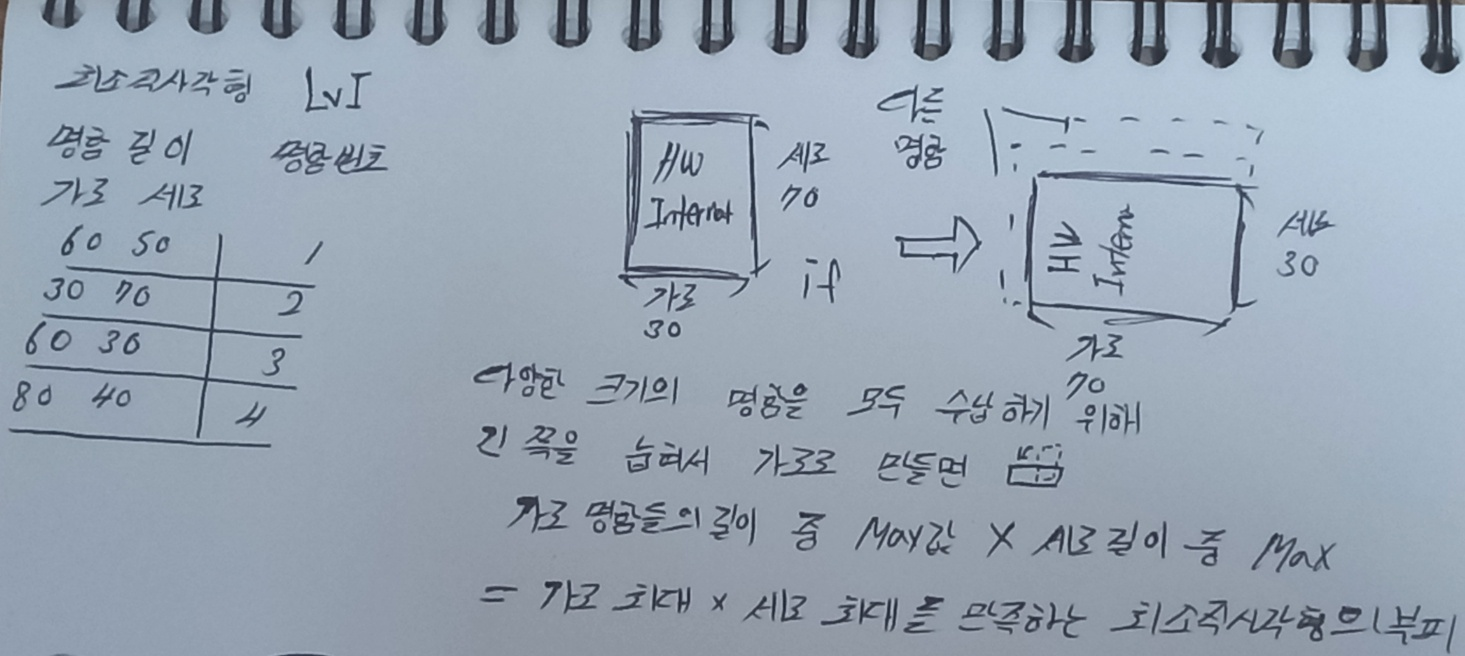 최소직사각형 Lv1
명함 길이 명함번호
가로 세로
60 50 1
30 70 2
60 30 3
80 40 4
HW
Internet
세로
70
가로
30
if
다른
명함
HW
Intern
세로
30
가로
70
다양한 크기의 명함을 모두 수납하기 위해
긴 쪽을 눕혀서 가로로 만들면
가로 명함들의 길이 중 Max값 X 세로길이 중 Max
= 가로 최대 x 세로 최대를 만족하는 최소직사각형의 부피